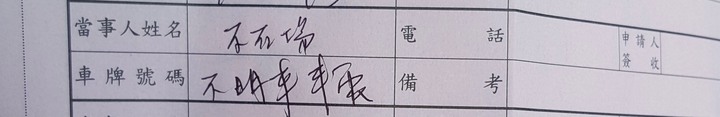 當事人姓名 不在場 電話 申請人簽收
車牌號碼 不明車車取 備考